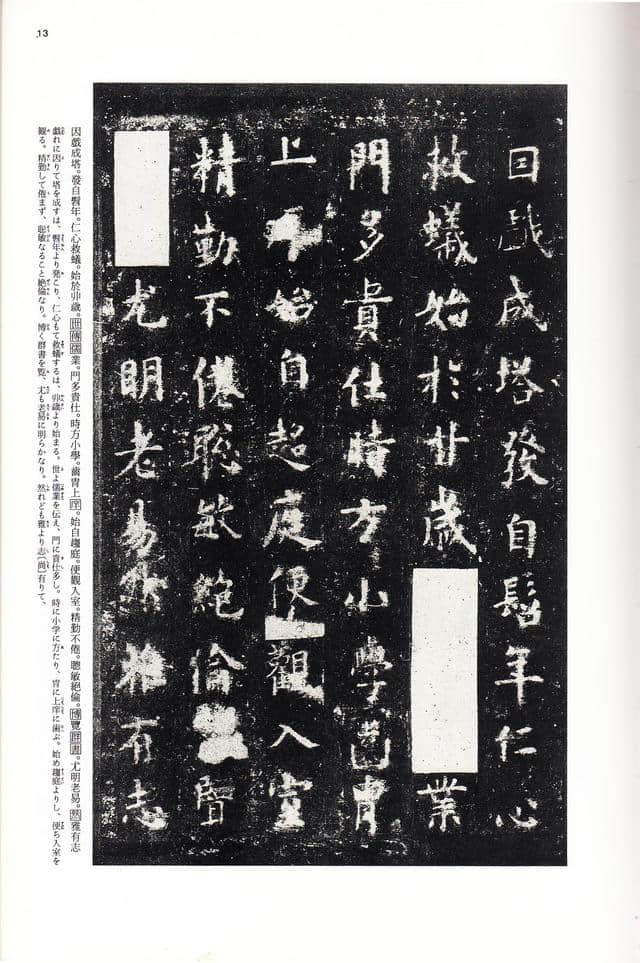 13
因戲成塔發自髫年仁心
救蟻始於丱歲業
門多貴仕時方小學齒胄
上始自趨庭便觀入室
精勤不倦聡敏絶倫覽
尤明老易雅有志
因戲成塔。發自髫年。仁心救蟻。始於丱歲。世傳儒業。門多貴仕。時方小學。齒胄上庠。始自趨庭。便觀入室。精勤不倦。聰敏絕倫。博覽群書。尤明老易。然雅有志
戲れに因りて塔を成すは、髫年より発こり、仁心もて救蟻するは、丱歳より始まる。世よ儒業を伝え、門に貴仕多し。時に小学に方たり、胄に上庠に歯ぶ。始め趨庭よりし、便ち入室を
観る。精勤して倦まず、聡敏なること絶倫なり。博く群書を覧、尤も老易に明らかなり。然れども雅より志〔尚〕有りて、